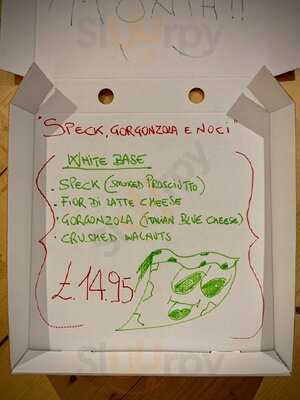 MONTH!!
"SPECK, GORGONZOLA E NOCI"
WHITE BASE
· SPECK (SMOKED PROSCIUTTO)
· FIOR DI LATTE CHEESE
· GORGONZOLA (ITALIAN BLUE CHEESE)
· CRUSHED WALNUTS
£.14.95
Sluurpy
Sluurpy